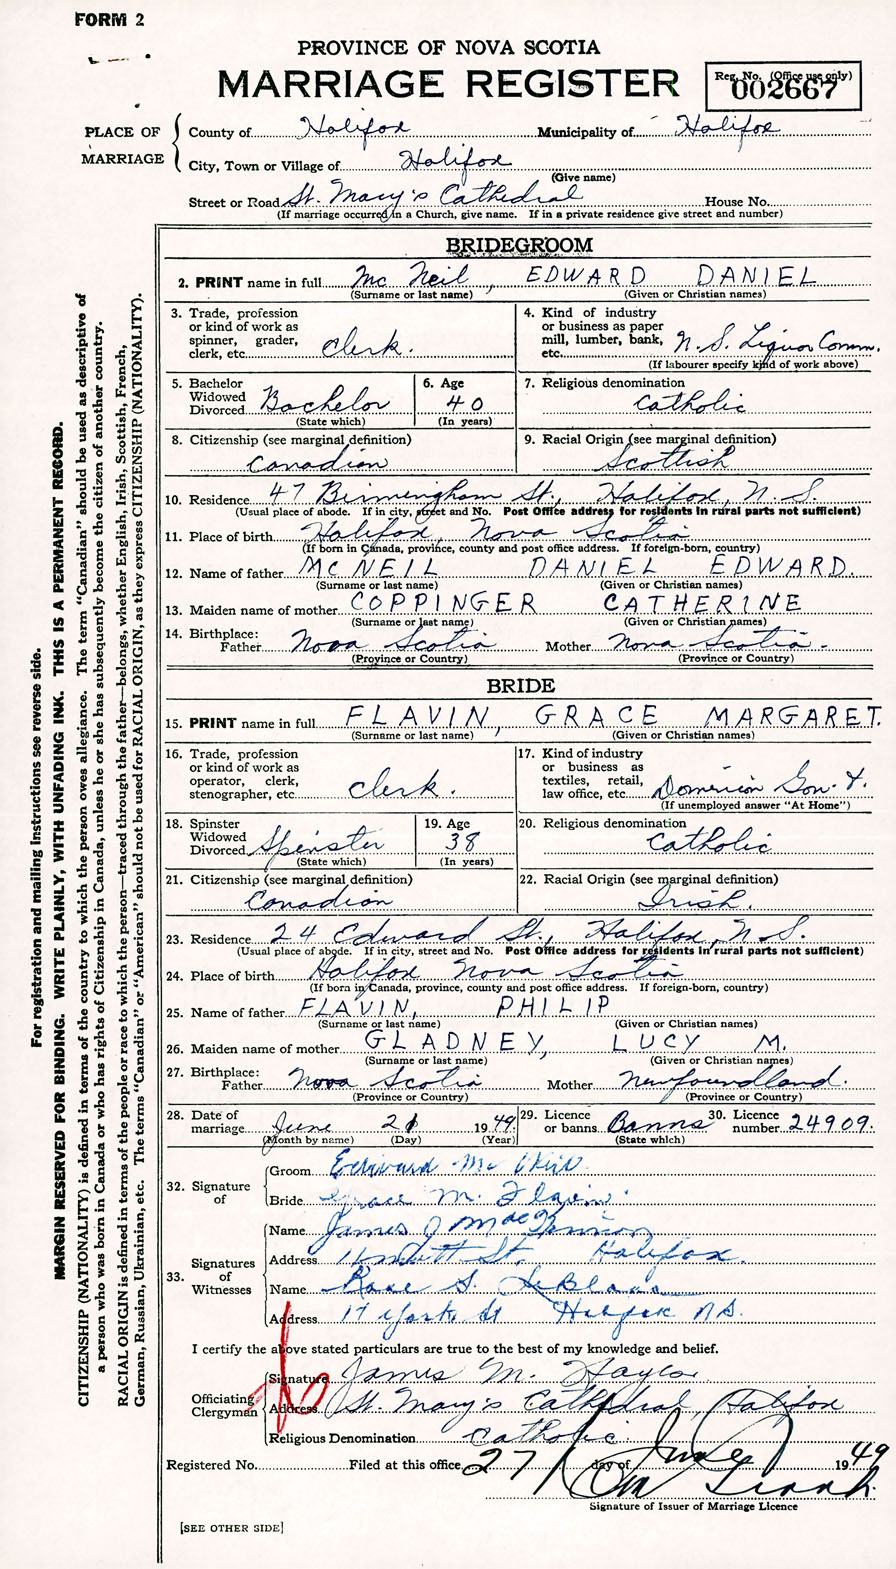 FORM 2
PROVINCE OF NOVA SCOTIA
MARRIAGE REGISTER
Reg. No. (Office use only)
002667
PLACE OF MARRIAGE
County of Halifax Municipality of Halifax
City, Town or Village of Halifax
(Give name)
Street or Road St. Mary's Cathedral House No.
(If marriage occurred in a Church, give name. If in a private residence give street and number)
BRIDEGROOM
2. PRINT name in full Mc Neil, EDWARD DANIEL
(Surname or last name) (Given or Christian names)
3. Trade, profession or kind of work as spinner, grader, clerk, etc. Clerk.
4. Kind of industry or business as paper mill, lumber, bank, etc. N.S. Liquor Comm.
(If labourer specify kind of work above)
5. Bachelor Widowed Divorced Bachelor
(State which)
6. Age 40
(In years)
7. Religious denomination Catholic
8. Citizenship (see marginal definition) Canadian
9. Racial Origin (see marginal definition) Scottish
10. Residence 47 Birmingham St., Halifax, N.S.
(Usual place of abode. If in city, street and No. Post Office address for residents in rural parts not sufficient)
11. Place of birth Halifax, Nova Scotia
(If born in Canada, province, county and post office address. If foreign-born, country)
12. Name of father MCNEIL DANIEL EDWARD.
(Surname or last name) (Given or Christian names)
13. Maiden name of mother COPPINGER CATHERINE
(Surname or last name) (Given or Christian names)
14. Birthplace: Father Nova Scotia Mother Nova Scotia.
(Province or Country) (Province or Country)
BRIDE
15. PRINT name in full FLAVIN, GRACE MARGARET.
(Surname or last name) (Given or Christian names)
16. Trade, profession or kind of work as operator, clerk, stenographer, etc. Clerk.
17. Kind of industry or business as textiles, retail, law office, etc. Dominion Gov't.
(If unemployed answer "At Home")
18. Spinster Widowed Divorced Spinster
(State which)
19. Age 38
(In years)
20. Religious denomination Catholic
21. Citizenship (see marginal definition) Canadian
22. Racial Origin (see marginal definition) Irish.
23. Residence 24 Edward St., Halifax, N.S.
(Usual place of abode. If in city, street and No. Post Office address for residents in rural parts not sufficient)
24. Place of birth Halifax Nova Scotia
(If born in Canada, province, county and post office address. If foreign-born, country)
25. Name of father FLAVIN, PHILIP
(Surname or last name) (Given or Christian names)
26. Maiden name of mother GLADNEY, LUCY M.
(Surname or last name) (Given or Christian names)
27. Birthplace: Father Nova Scotia Mother Newfoundland.
(Province or Country) (Province or Country)
28. Date of marriage June 21 1949
(Month by name) (Day) (Year)
29. Licence or banns Banns
(State which)
30. Licence number 24909.
32. Signature of
Groom Edward Mc Neil
Bride Grace M. Flavin.
33. Signatures of Witnesses
Name James J Mac
Address St. Halifax.
Name Rose S. LeBlanc
Address 17 York St Halifax N.S.
I certify the above stated particulars are true to the best of my knowledge and belief.
Officiating Clergyman
Signature James M. Hayes
Address St. Mary's Cathedral, Halifax
Religious Denomination Catholic.
Registered No. Filed at this office 27 day of June 1949
Signature of Issuer of Marriage Licence
[SEE OTHER SIDE]
For registration and mailing instructions see reverse side.
MARGIN RESERVED FOR BINDING. WRITE PLAINLY, WITH UNFADING INK. THIS IS A PERMANENT RECORD.
CITIZENSHIP (NATIONALITY) is defined in terms of the country to which the person owes allegiance. The term "Canadian" should be used as descriptive of
a person who was born in Canada or who has rights of Citizenship in Canada, unless he or she has subsequently become the citizen of another country.
RACIAL ORIGIN is defined in terms of the people or race to which the person—traced through the father—belongs, whether English, Irish, Scottish, French,
German, Russian, Ukrainian, etc. The terms "Canadian" or "American" should not be used for RACIAL ORIGIN, as they express CITIZENSHIP (NATIONALITY).